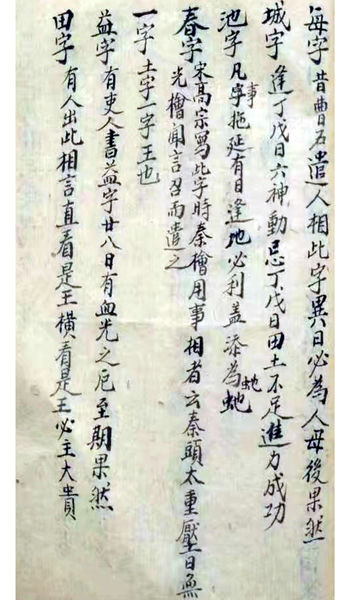 每字 昔曹石遣人相此字異日必為人母後果然
城字 逢丁戊日六神動忌丁戊日田土不足進力成功
池字 凡字事拖延有日逢地必利蓋添為虵蛇
春字 宋高宗寫此字時秦檜用事相者云秦頭太重壓日無
光檜聞言召而遣之
一字 土字一字王也
益字 有吏人書益字廿八日有血光之厄至期果然
田字 有人出此相言直看是王橫看是王必主大貴